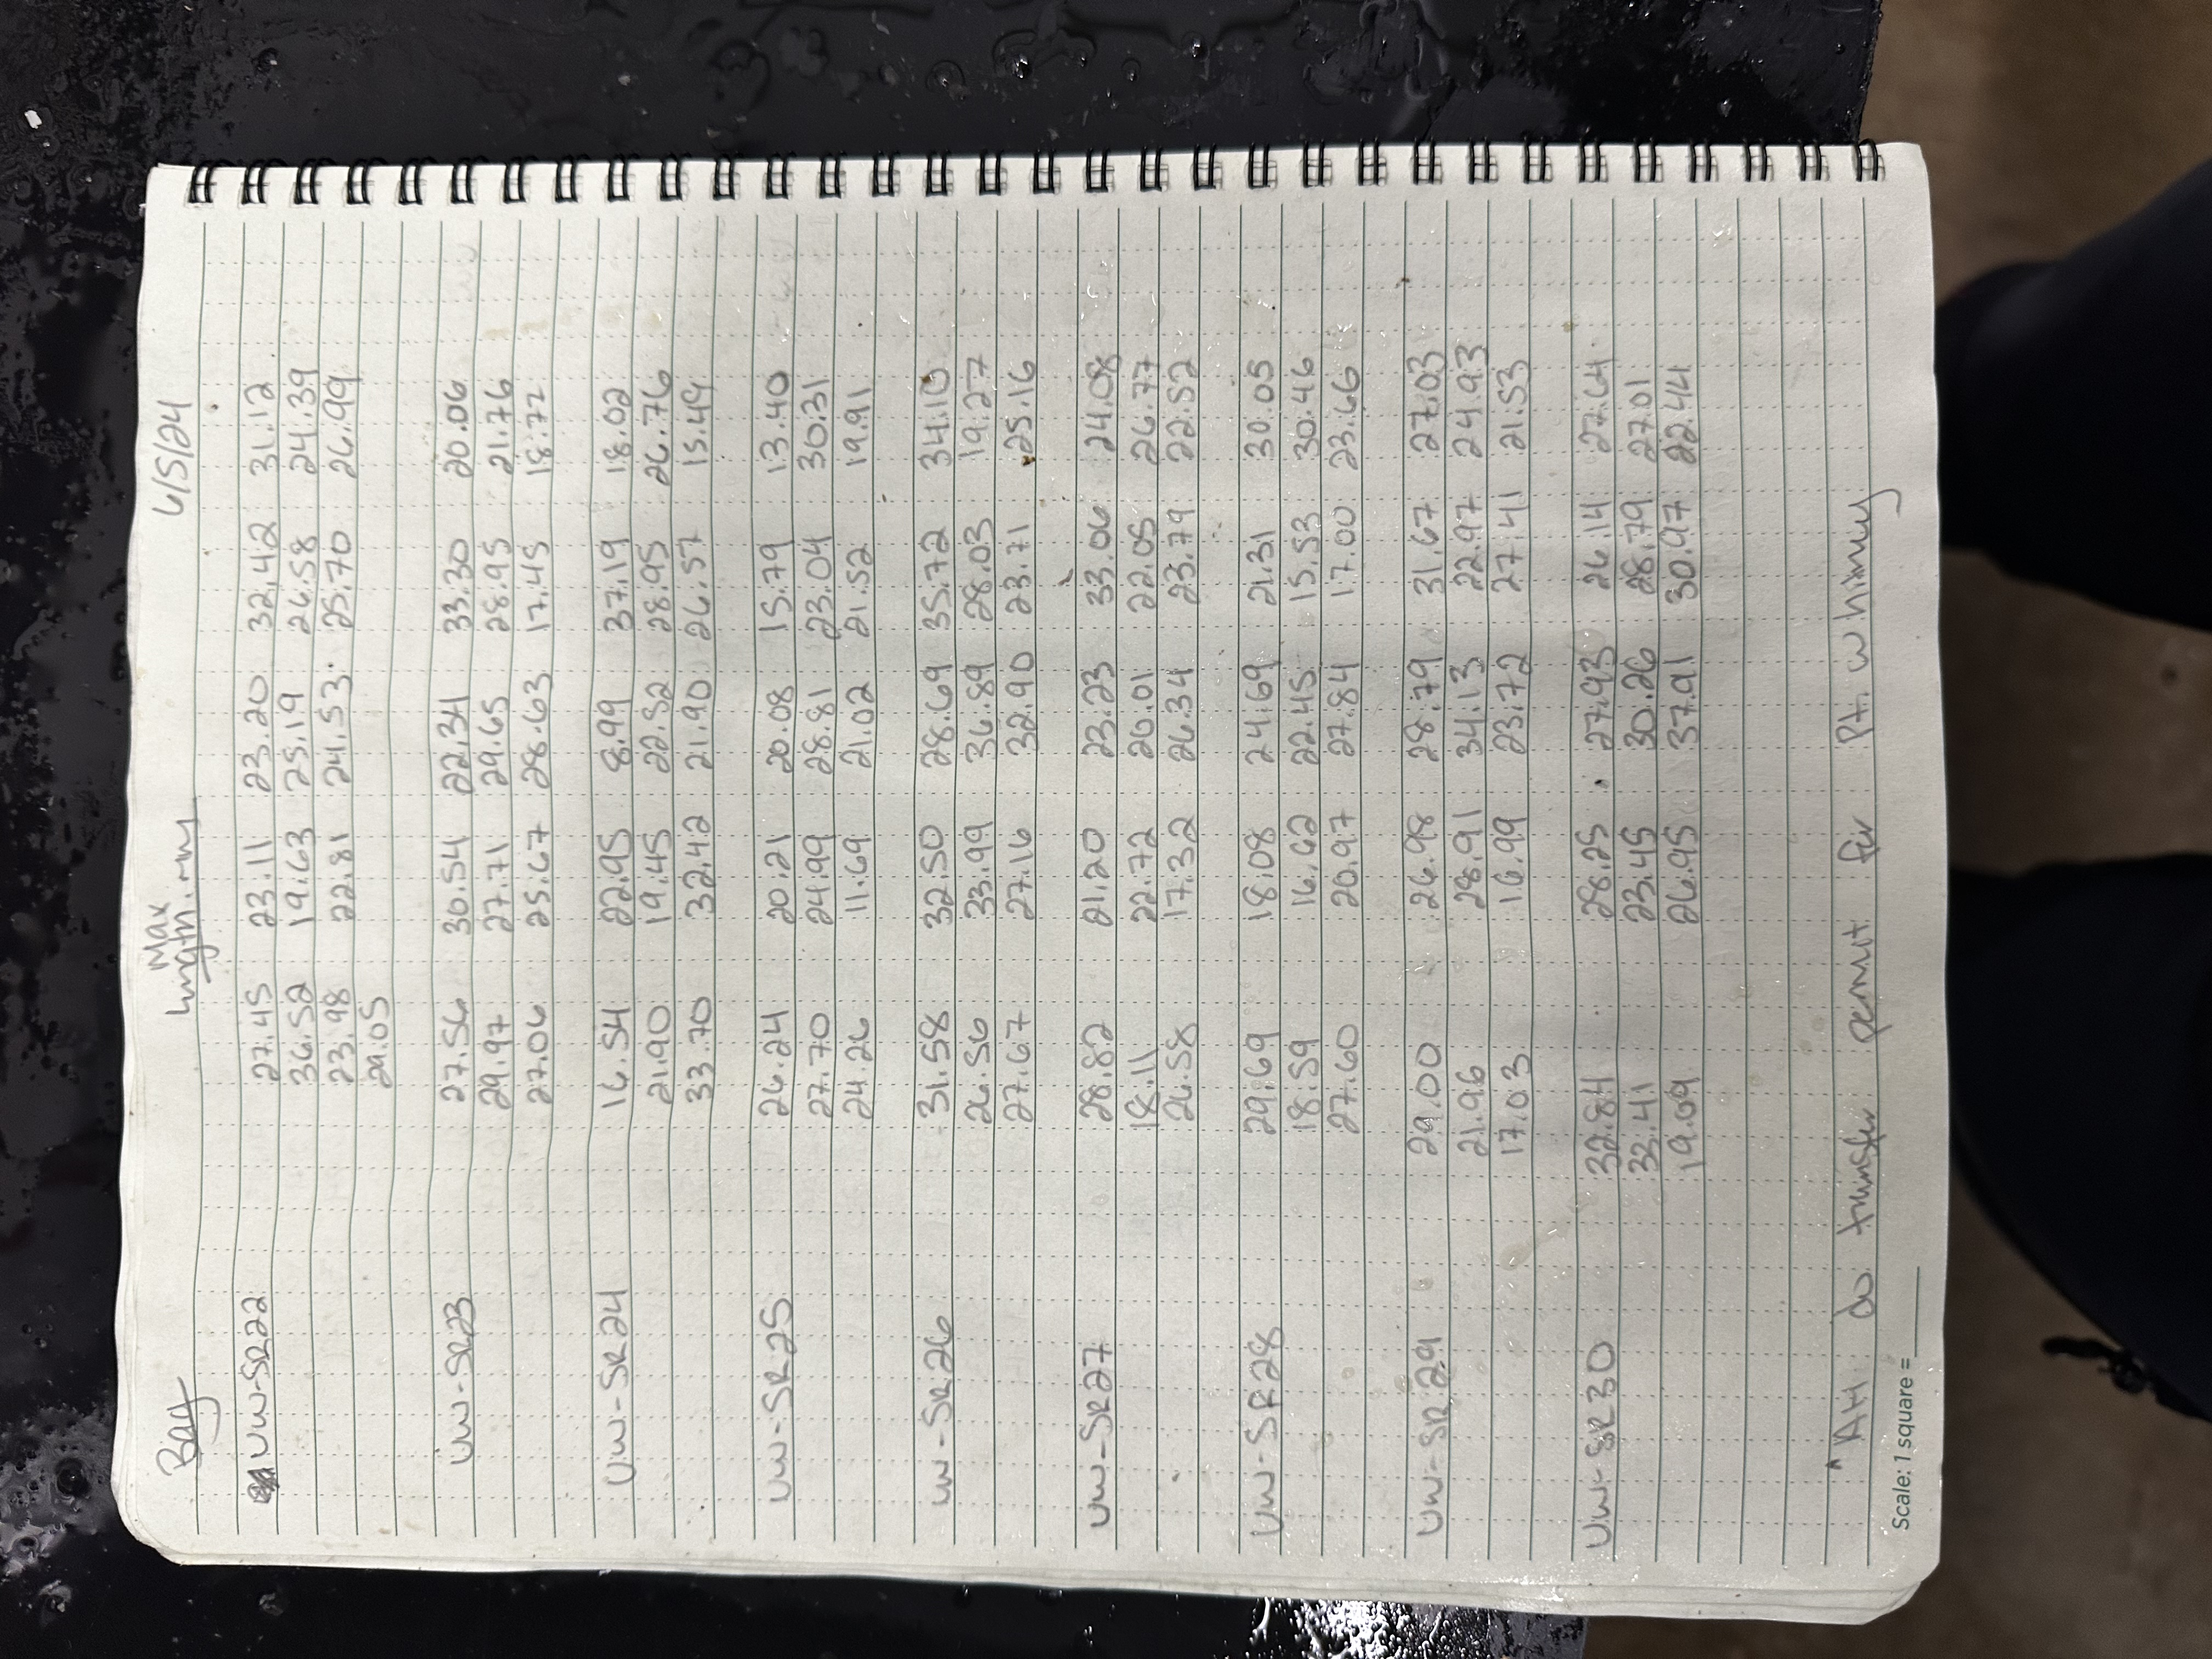 Bag Max length.mm 6/5/24
UW-SR22 27.45 23.11 23.20 32.42 31.12
36.52 19.63 25.19 26.58 24.39
23.98 22.81 24.53 25.70 26.99
29.05
UW-SR23 27.56 30.54 22.34 33.30 20.06
29.97 27.71 29.65 28.95 21.76
27.06 25.67 28.63 17.45 18.72
UW-SR24 16.54 22.95 8.99 37.19 18.02
21.90 19.45 22.52 28.95 26.76
33.70 32.42 21.90 26.57 15.49
UW-SR25 26.24 20.21 20.08 15.79 13.40
27.70 24.99 28.81 23.04 30.31
24.26 11.69 21.02 21.52 19.91
UW-SR26 31.58 32.50 28.69 35.72 34.10
26.56 33.99 36.89 28.03 19.27
27.67 27.16 32.90 23.71 25.16
UW-SR27 28.82 21.20 23.23 33.06 24.08
18.11 22.72 20.01 22.05 26.77
26.58 17.32 26.34 23.79 22.52
UW-SR28 29.69 18.08 24.69 21.31 30.05
18.59 16.62 22.45 15.53 30.46
27.60 20.97 27.84 17.00 23.66
UW-SR29 29.00 26.98 28.79 31.67 27.03
21.96 28.91 34.13 22.97 24.93
17.03 16.99 23.72 27.41 21.53
UW-SR30 32.84 28.25 27.93 26.14 27.64
33.41 23.45 30.26 28.79 27.01
19.09 26.95 37.91 30.97 22.44
*AH do transfer permit for Pt. Whitney
Scale: 1 square =